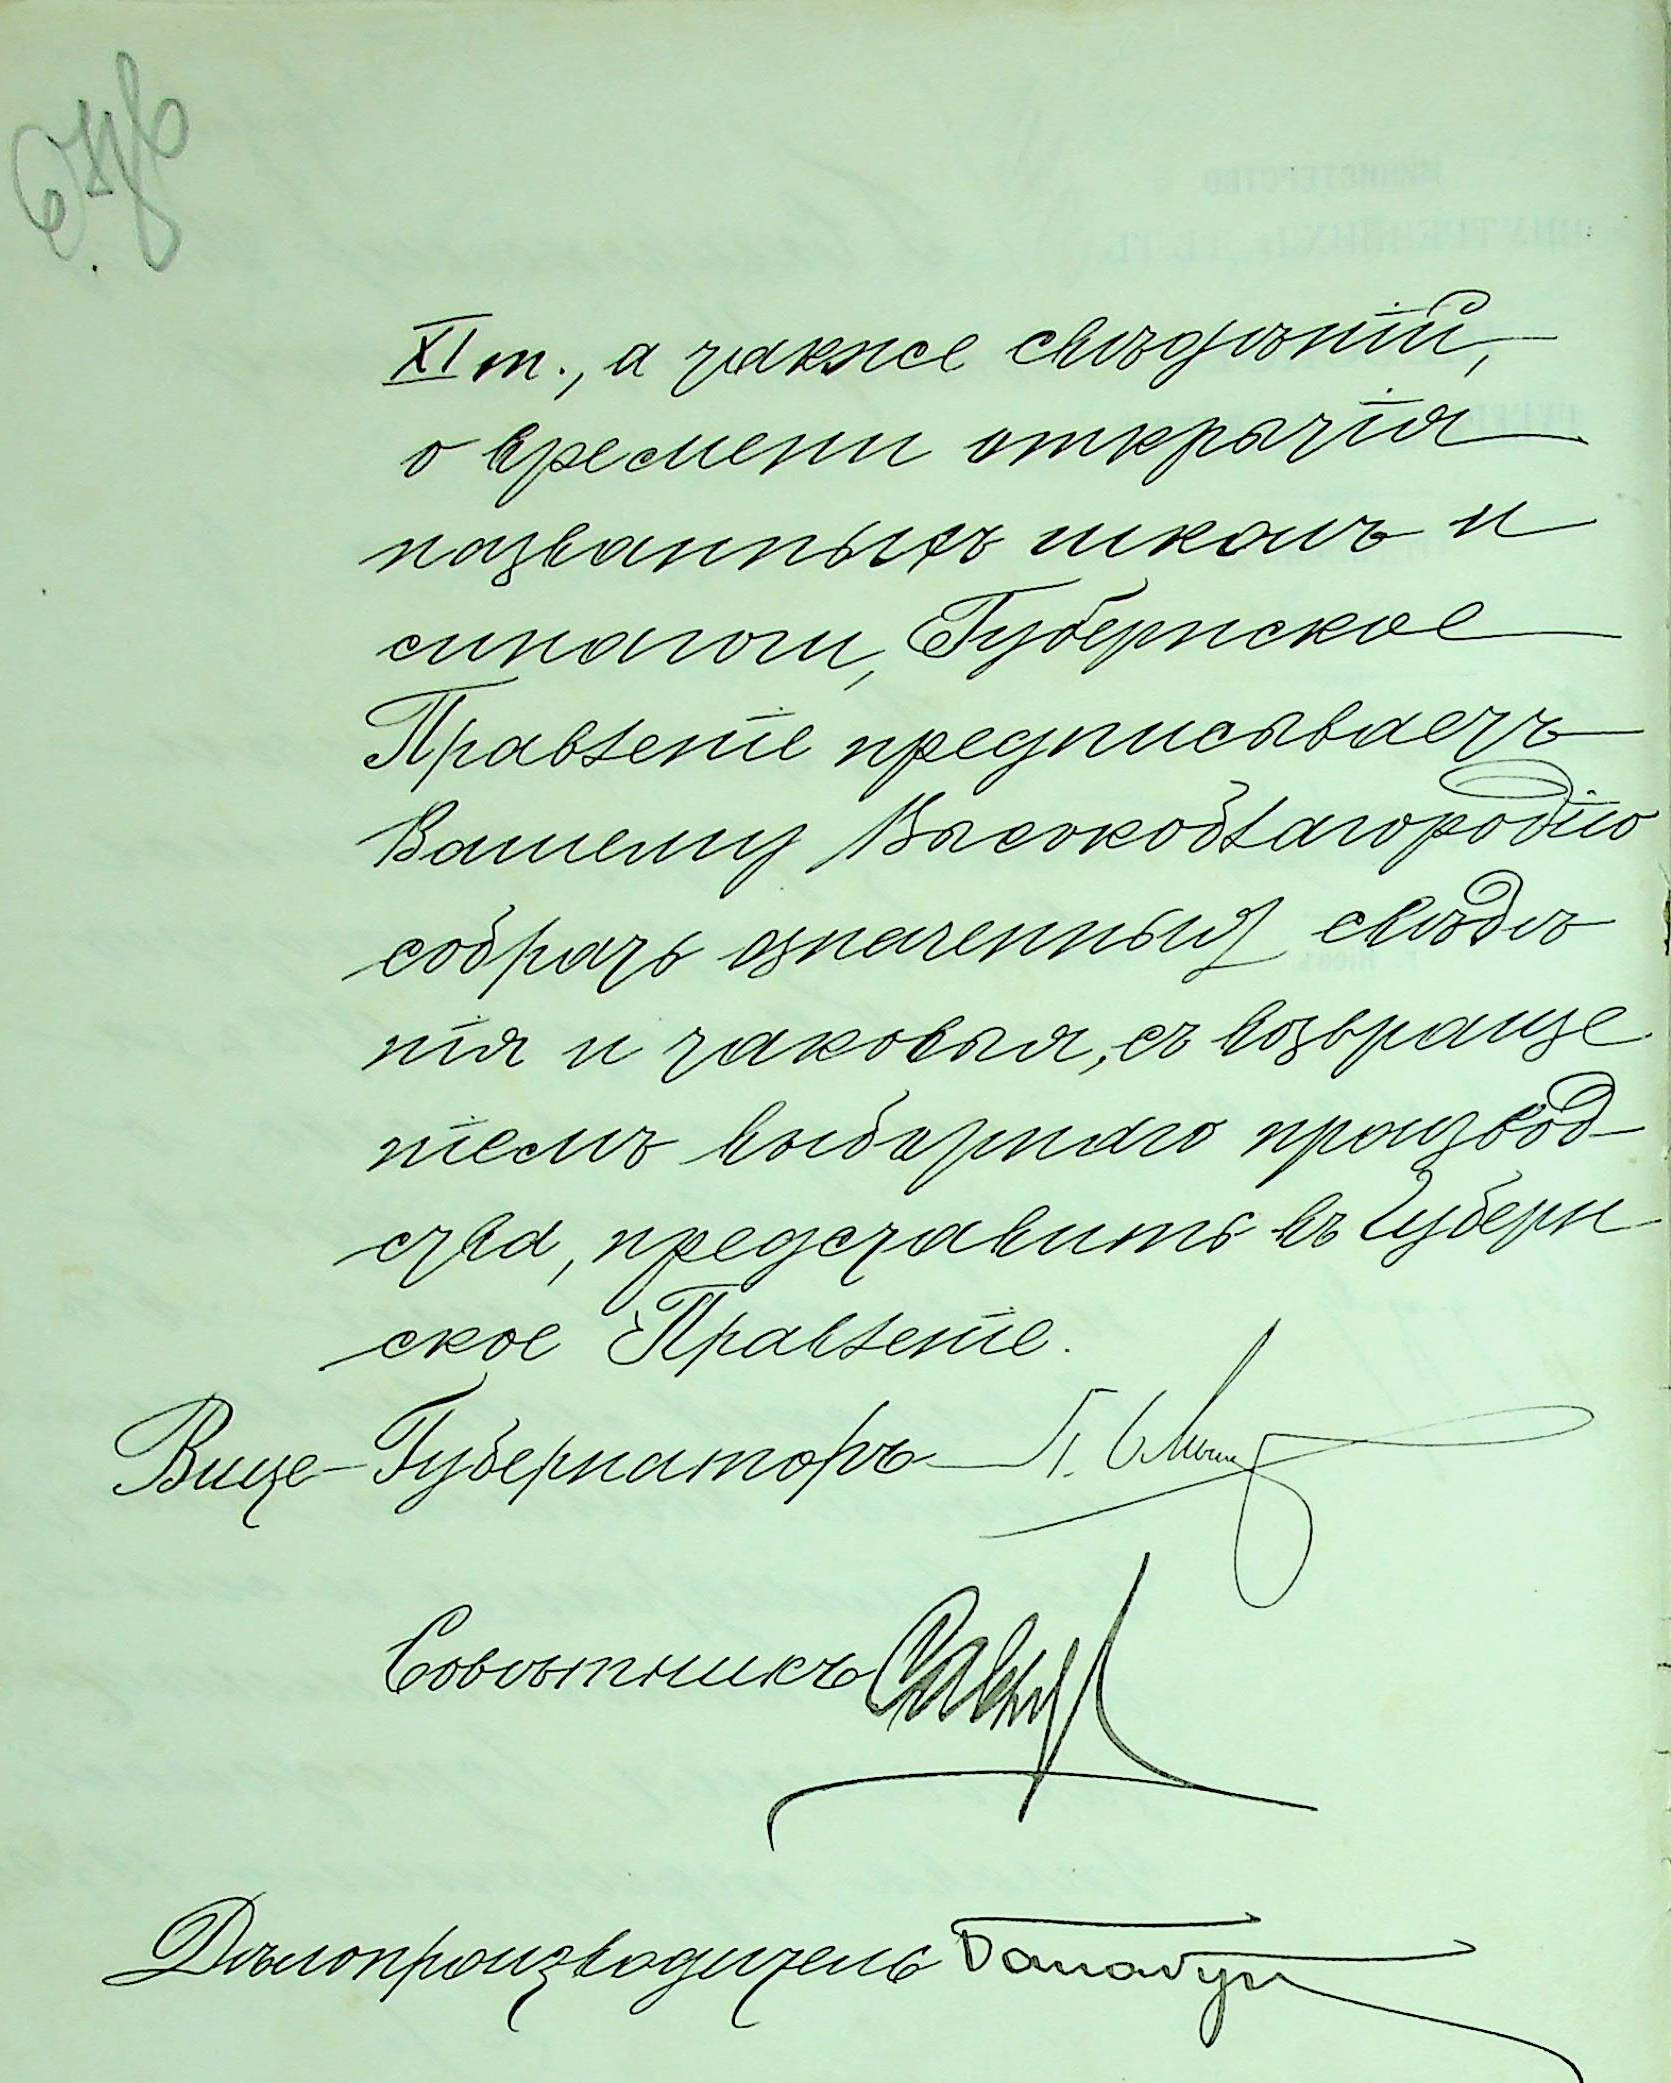 XI т., а также свѣдѣній,
о времени открытія
названныхъ школъ и
синагоги, Губернское
Правленіе предписываетъ
Вашему Высокоблагородію
собрать означенныя свѣдѣ
нія и таковыя, съ возвраще
ніемъ выборнаго производ-
ства, представить въ Губерн
ское Правленіе.
Вице-Губернаторъ
Совѣтникъ
Дѣлопроизводитель